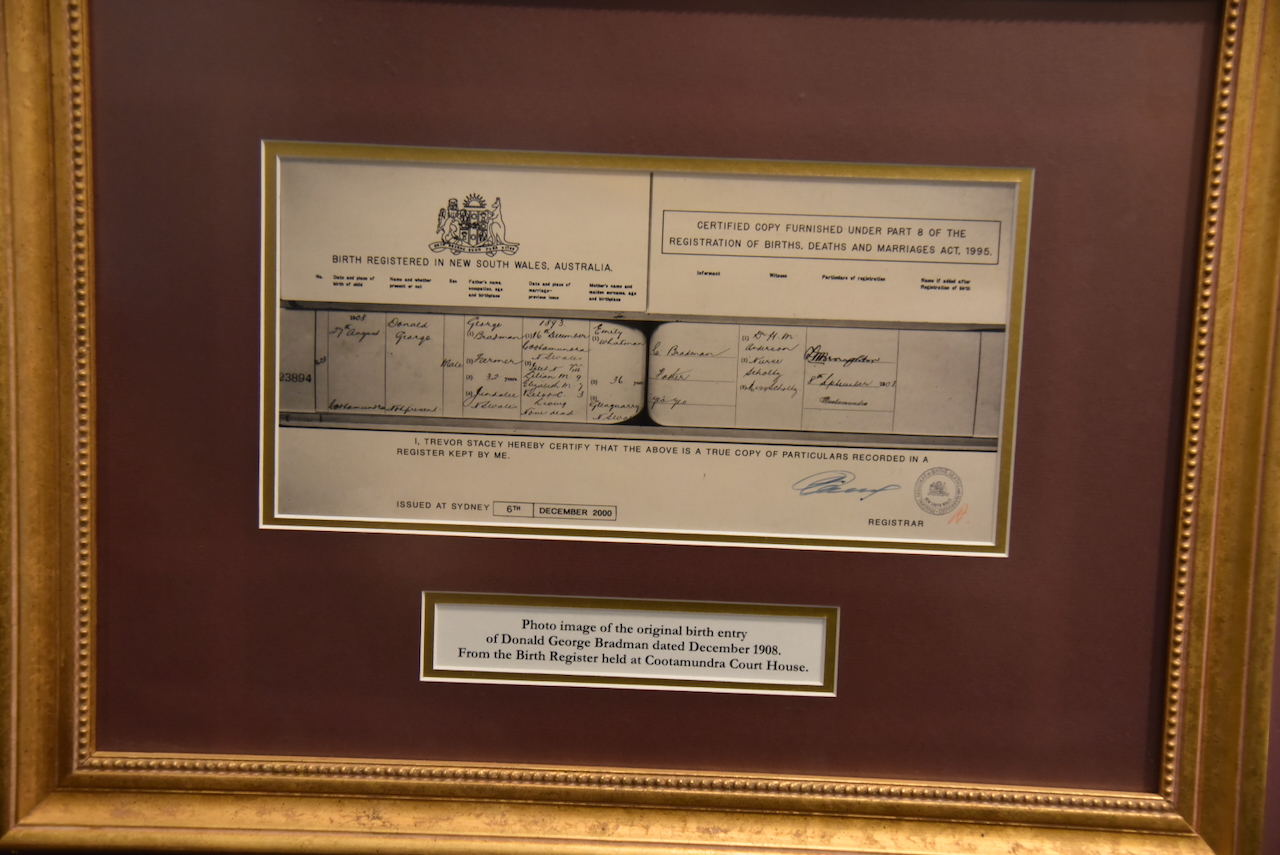 BIRTH REGISTERED IN NEW SOUTH WALES, AUSTRALIA.
CERTIFIED COPY FURNISHED UNDER PART 8 OF THE
REGISTRATION OF BIRTHS, DEATHS AND MARRIAGES ACT, 1995.
No.
Date and place of
birth of child
Name and whether
present or not
Sex
Father's name,
occupation, age
and birthplace
Date and place of
marriage-
previous issue
Mother's name and
maiden surname, age
and birthplace
Informant
Witness
Particulars of registration
Name if added after
Registration of birth
23894
1908
27th August
Cootamundra
Donald
George
Not present
Male
George
(1) Bradman
(2) Farmer
(3) 32 years
(4) Jindalee
N S Wales
1893
(1) 16th December
Cootamundra
N S Wales
Lilian M 9
Elizabeth M 7
3
Living
None dead
Emily
(1) Whatman
(2) 36 years
(3)
N S Wales
G Bradman
Father
(1) Dr H. M
Anderson
(2) Nurse
Scholtz
(3)
8th September 1908
Cootamundra
I, TREVOR STACEY HEREBY CERTIFY THAT THE ABOVE IS A TRUE COPY OF PARTICULARS RECORDED IN A
REGISTER KEPT BY ME.
ISSUED AT SYDNEY 6TH DECEMBER 2000
REGISTRAR
Photo image of the original birth entry
of Donald George Bradman dated December 1908.
From the Birth Register held at Cootamundra Court House.